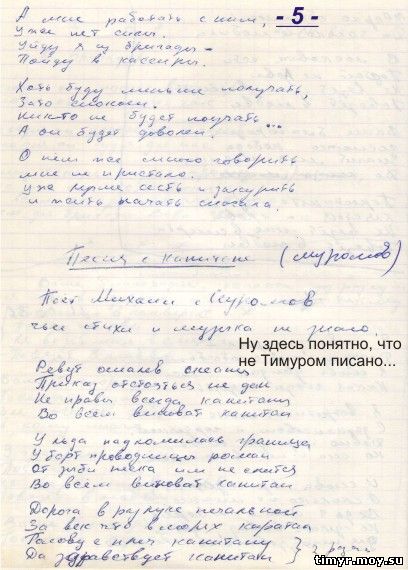 - 5 -
А мне работать с ним,
Уже нет силы.
Уйду я из бригады -
Пойду в кассиры.
Хоть буду меньше получать,
Зато спокоен.
Никто не будет поучать
А он будет доволен...
О нем же много говорить
мне не пристало.
уже лучше сесть и закурить
и жить начать сначала.
Песня о капитане (Муромов)
Поёт Михаил Муромов
чьи стихи и музыка не знаю.
Ну здесь понятно, что
не Тимуром писано...
Ревут океаны
Приказ отстояться не дан
Не правы всегда капитаны
Во всем виноват капитан
У льда надломилась граница
У борт проводницы роман
От им не спится
Во всем виноват капитан
Дорога в разлуке печальной
За век что в морях
Голову с плеч капитану
Да здравствует капитан
} 2 раза
timyr-moy.su